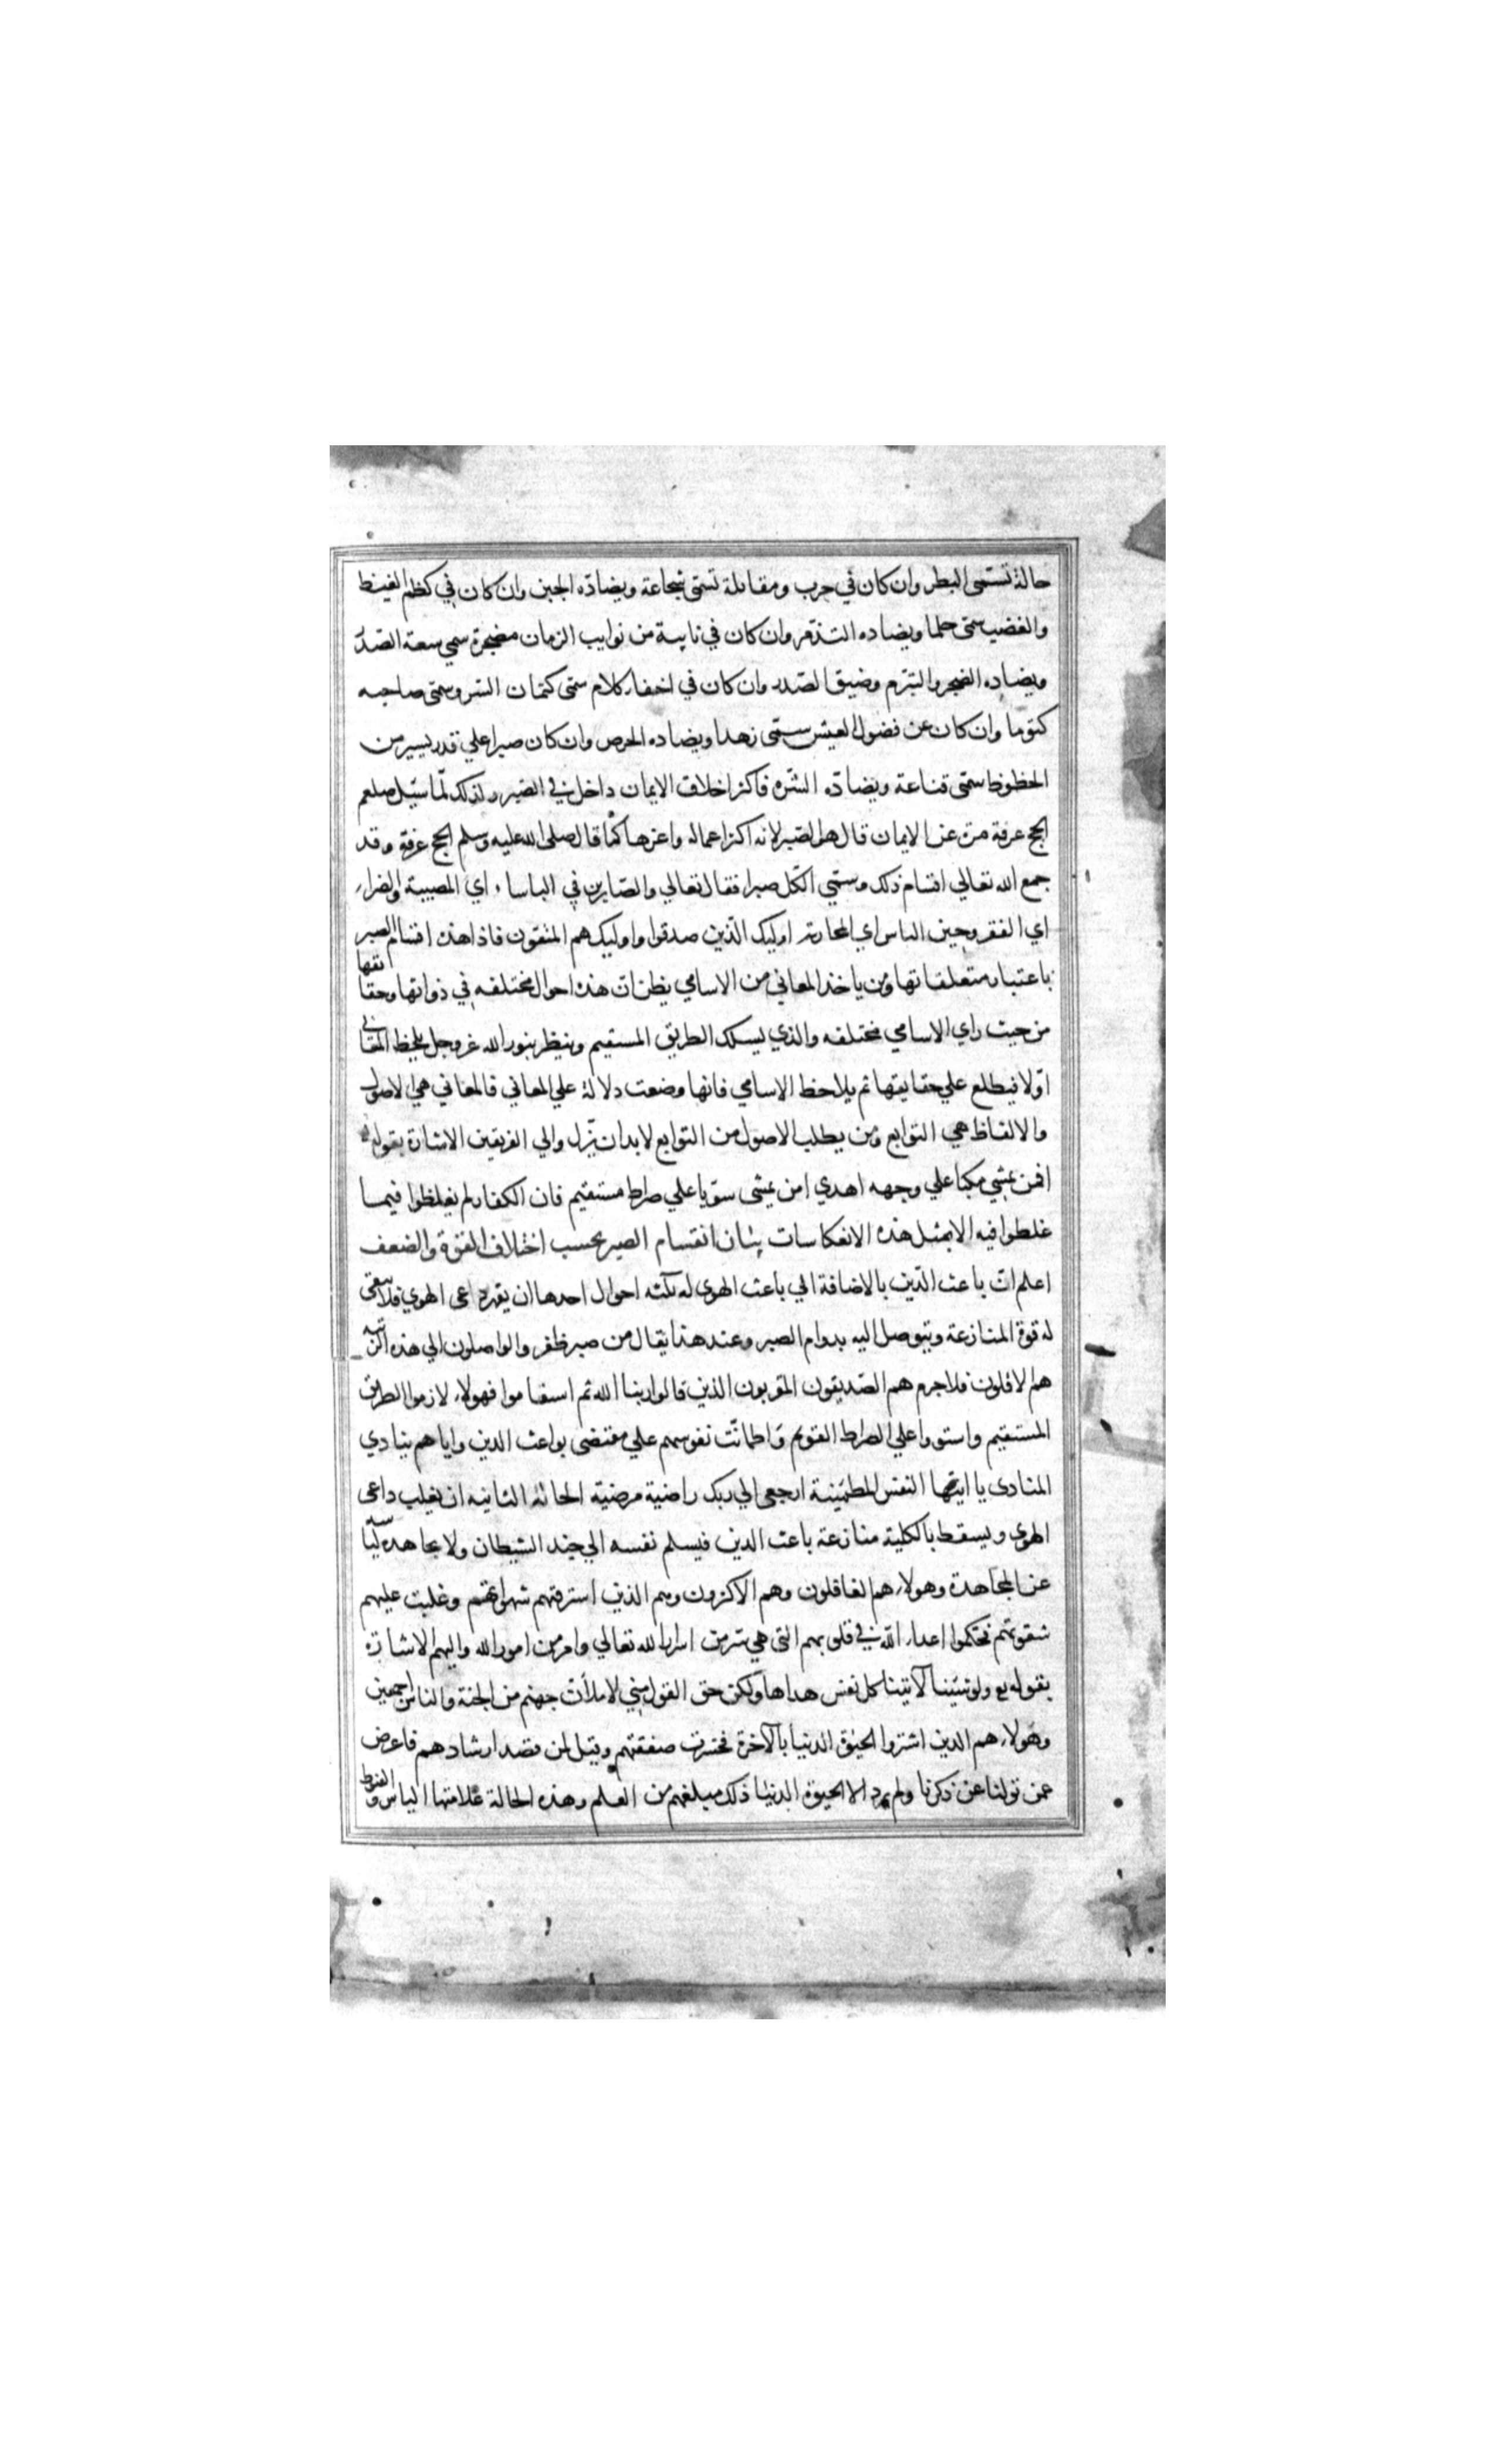 حالة تسمى البطر وان كان في حرب ومقاتلة تسمى شجاعة ويضاده الجبن وان كان في كظم الغيظ
والغضب سمى حلما ويضاده التذمر وان كان في نايبة من نوايب الزمان مضجرة سمي سعة الصدر
ويضاده الضجر والتبرم وضيق الصدر وان كان في اخفاء كلام سمى كتمان السر وسمى صاحبه
كتوما وان كان عن فضول العيش سمى زهدا ويضاده الحرص وان كان صبرا علي قدر يسير من
الحظوظ سمى قناعة ويضاده الشره فاكثر اخلاق الايمان داخل في الصبر ولذلك لما سئل صلعم
الحج عرفة مرة عن الايمان قال هو الصبر لانه اكثر اعماله واعزها كما قال صلى الله عليه وسلم الحج عرفة وقد
جمع الله تعالي اقسام ذلك وسمي الكل صبرا فقال تعالي والصابرين في الباساء اي المصيبة والضراء
اي الفقر وحين الباس اي المحاربة اوليك الذين صدقوا واوليك هم المتقون فاذا هذه اقسام الصبر
باعتبار متعلقاتها ومن ياخذ المعاني من الاسامي يظن ان هذه احوال مختلفه في ذواتها وحقايقها
من حيث راي الاسامي مختلفه والذي يسلك الطريق المستقيم وينظر بنور الله عز وجل يلحظ المعاني
اولا فيطلع علي حقايقها ثم يلاحظ الاسامي فانها وضعت دلالة علي المعاني فالمعاني هي الاصول
والالفاظ هي التوابع ومن يطلب الاصول من التوابع لابد ان يزل والي الفريقين الاشارة بقوله
افمن يمشي مكبا علي وجهه اهدي امن يمشى سويا علي صراط مستقيم فان الكفار لم يغلطوا فيما
غلطوا فيه الا بمثل هذه الانعكاسات بيان انقسام الصبر بحسب اختلاف القوة والضعف
اعلم ان باعث الدين بالاضافة الي باعث الهوى له ثلثه احوال احدها ان يقهر داعى الهوي فلا يبقى
له قوة المنازعة ويتوصل اليه بدوام الصبر وعند هذا يقال من صبر ظفر والواصلون الي هذه الرتبه
هم الاقلون فلا جرم هم الصديقون المقربون الذين قالوا ربنا الله ثم استقاموا فهولاء لازموا الطريق
المستقيم واستووا علي الصراط القويم واطمانت نفوسهم علي مقتضى بواعث الدين واياهم ينادي
المنادى يا ايتها النفس المطمئينة ارجعى الي ربك راضية مرضية الحالة الثانيه ان يغلب داعى
الهوي ويسقط بالكلية منازعة باعث الدين فيسلم نفسه الي جند الشيطان ولا يجاهد
عن المجاهدة وهولاء هم الغافلون وهم الاكثرون وهم الذين استرقتهم شهواتهم وغلبت عليهم
شقوتهم فحكموا اعداء الله في قلوبهم التى هي سر من اسرار الله تعالي وامر من امور الله واليهم الاشارة
بقوله تع ولو شئنا لآتينا كل نفس هداها ولكن حق القول مني لاملأن جهنم من الجنة والناس اجمعين
وهولاء هم الذين اشتروا الحيوة الدنيا بالآخرة فخسرت صفقتهم وقيل لمن قصد ارشادهم فاعرض
عمن تولى عن ذكرنا ولم يرد الا الحيوة الدنيا ذلك مبلغهم من العلم وهذه الحالة علامتها الياس والقنوط